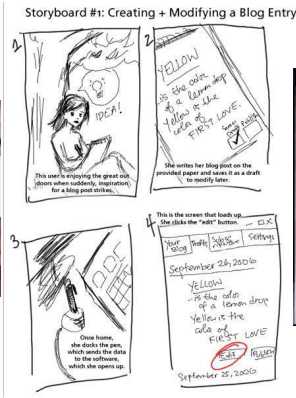 Storyboard #1: Creating + Modifying a Blog Entry
1
IDEA!
This user is enjoying the great out
doors when suddenly, inspiration
for a blog post strikes.
2
YELLOW
-is the color
of a lemon drop
Yellow is the
color of
FIRST LOVE.
She writes her blog post on the
provided paper and saves it as a draft
to modify later.
3
Once home,
she docks the pen,
which sends the data
to the software,
which she opens up.
4
This is the screen that loads up
She clicks the "edit" button.
Your
Blog
Drafts
Settings
September 26, 2006
YELLOW
-is the color
of a lemon drop
Yellow is the
color of
FIRST LOVE
Edit
Publish
September 25, 2006